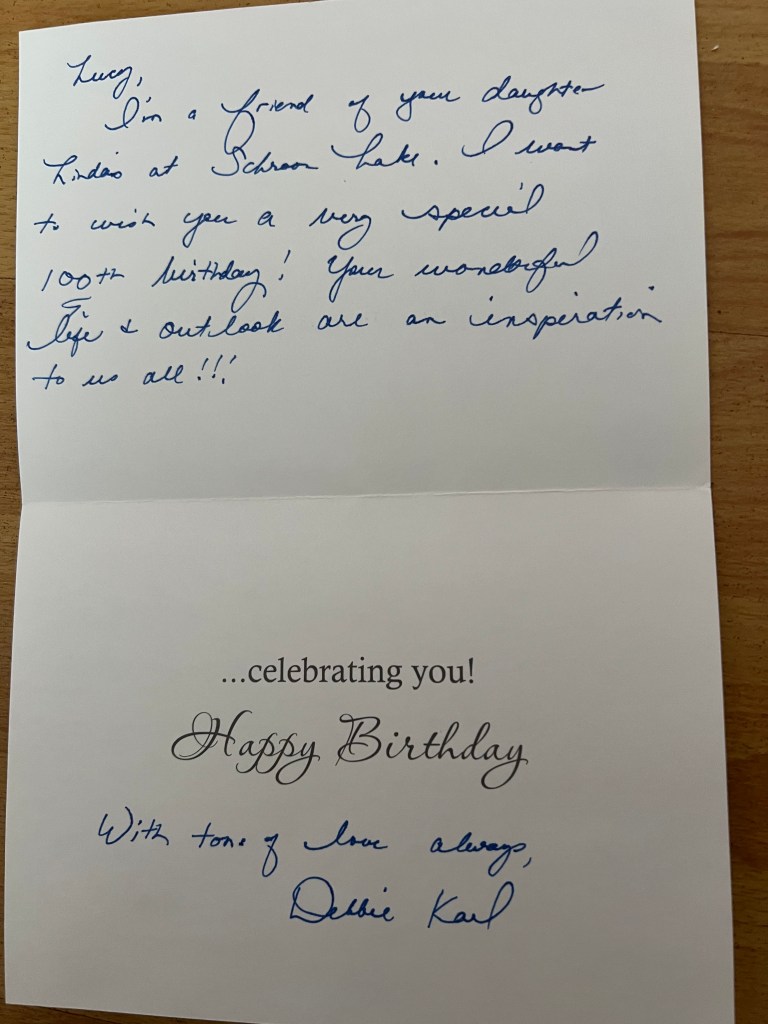 Lucy,
I'm a friend of your daughter
Linda's at Schroon Lake. I want
to wish you a very special
100th birthday! Your wonderful
life & outlook are an inspiration
to us all!!!
...celebrating you!
Happy Birthday
With tons of love always,
Debbie Karl